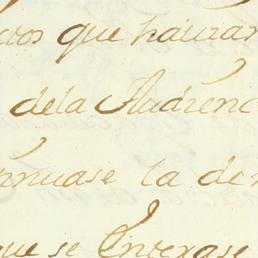 que hauran
dela Audienc
nnuase la de
que se Interase